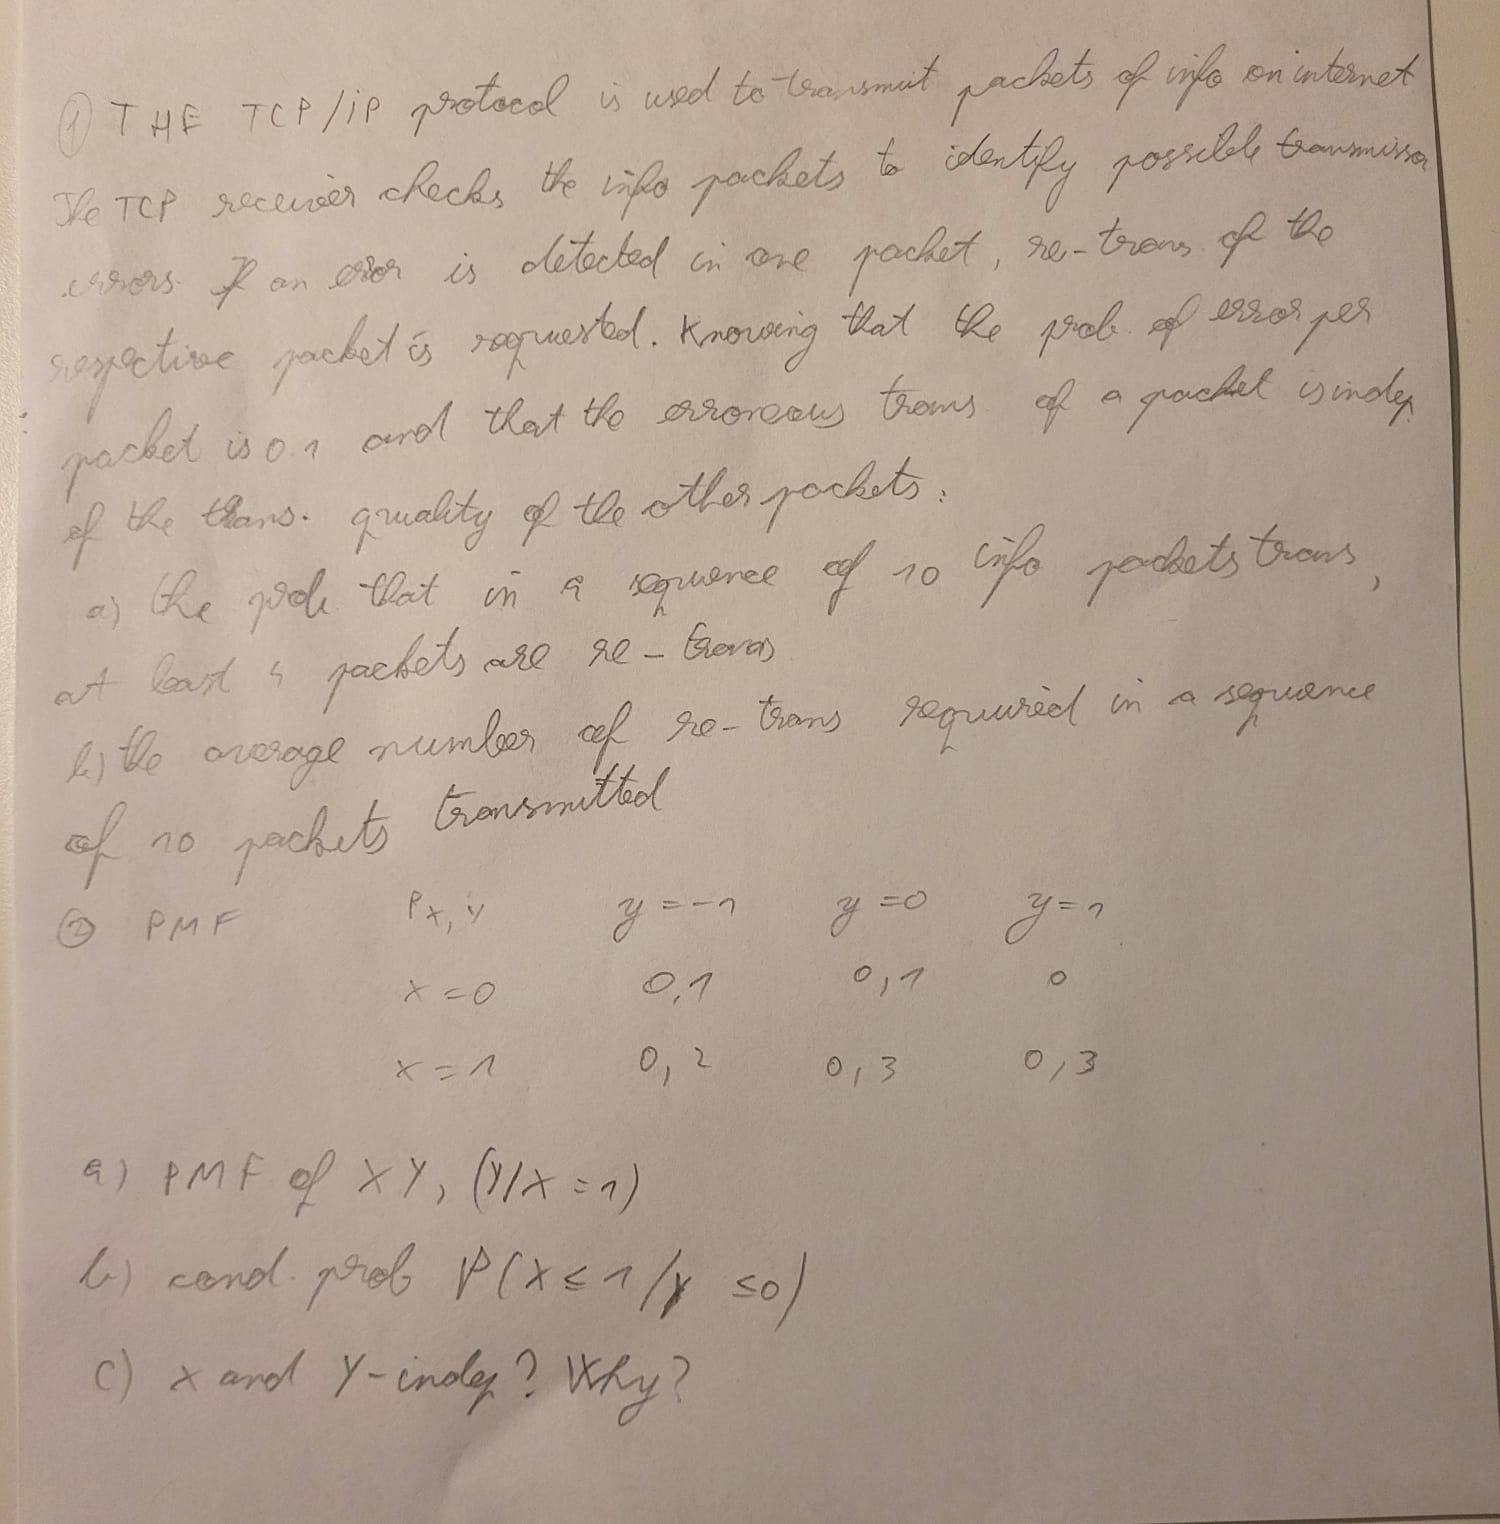 ① THE TCP/iP protocol is used to transmit packets of info on internet.
The TCP receiver checks the info packets to identify possible transmission
errors. If an error is detected in one packet, re-trans. of the
respective packet is requested. Knowing that the prob. of error per
packet is 0.1 and that the erroneous trans of a packet is indep
of the trans. quality of the other packets:
a) the prob. that in a sequence of 10 info packets trans,
at least 4 packets are re-trans
b) the average number of re-trans required in a sequence
of 10 packets transmitted
② PMF P X,Y y=-1 y=0 y=1
x=0 0,1 0,1 0
x=1 0,2 0,3 0,3
a) PMF of XY, (Y/X=1)
b) cond. prob P(X≤1/Y ≤0)
c) x and Y-indep? Why?